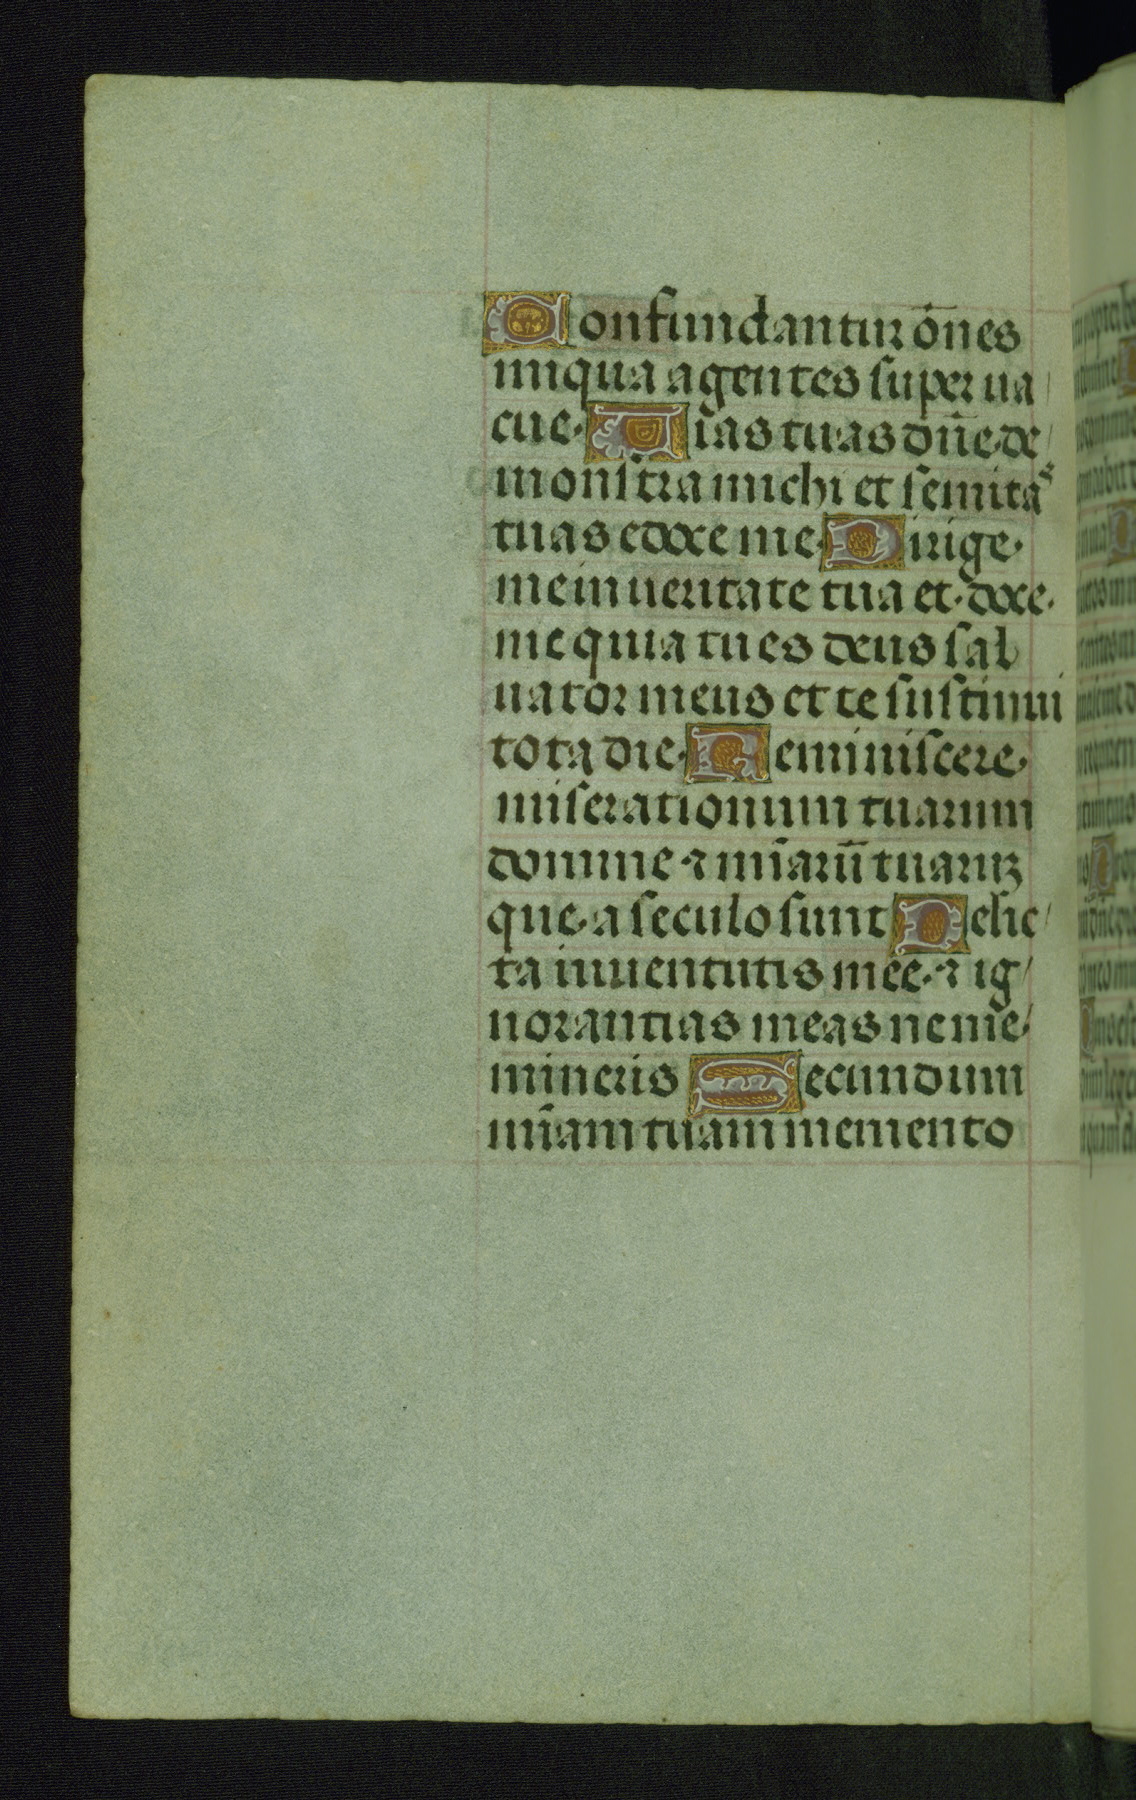 Confundantur om̄es
iniqua agentes super ua
cue. Uias tuas dn̄e de
monstra michi et semitas
tuas edoce me. Dirige
me in ueritate tua et doce
me quia tu es deus sal
uator meus et te sustinui
tota die. Reminiscere
miserationum tuarum
domine ⁊ mīarū tuarꝫ
que a seculo sunt Delic
ta iuuentutis mee. ⁊ ig
norantias meas ne me
mineris Secundum
mīam tuam memento